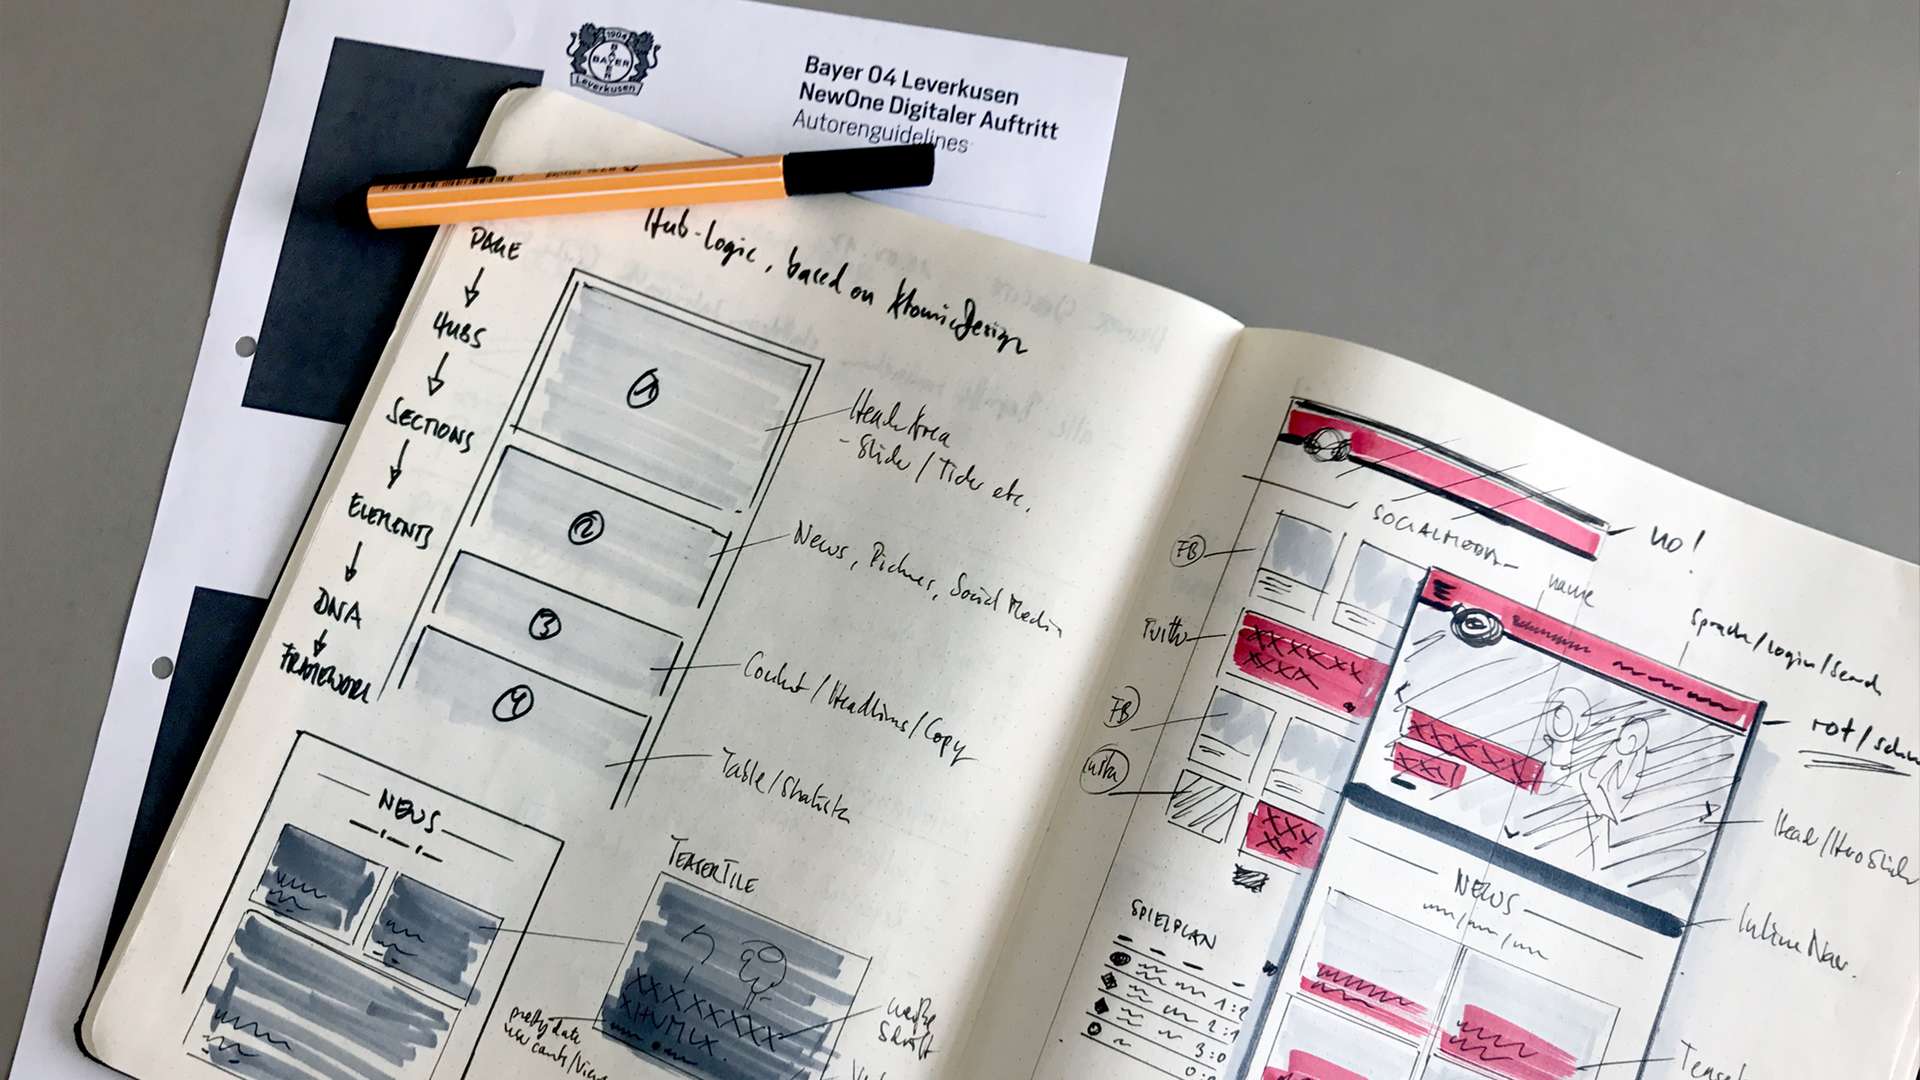 1904
BAYER
BAYER
Leverkusen
Bayer 04 Leverkusen
NewOne Digitaler Auftritt
Autorenguidelines
Hub-Logic, based on Atomic Design
PAGE
HUBS
SECTIONS
ELEMENTS
DNA
FRAMEWORK
1
2
3
4
Head Area
- Slider / Ticker etc.
News, Pictures, Social Media
Content / Headlines / Copy
Table / Statistik
NEWS
TEASERTILE
XXXXXXXX
weiße
Schrift
NO!
SOCIALMEDIA
FB
Twitter
XXXXXX
XXXX
FB
Insta
XXX
XX
name
Sprache/Login/Search
rot/schw
XXXXXX
XXX
Head/HeroSlider
Inline Nav.
NEWS
SPIELPLAN
1:2
2:1
3:0